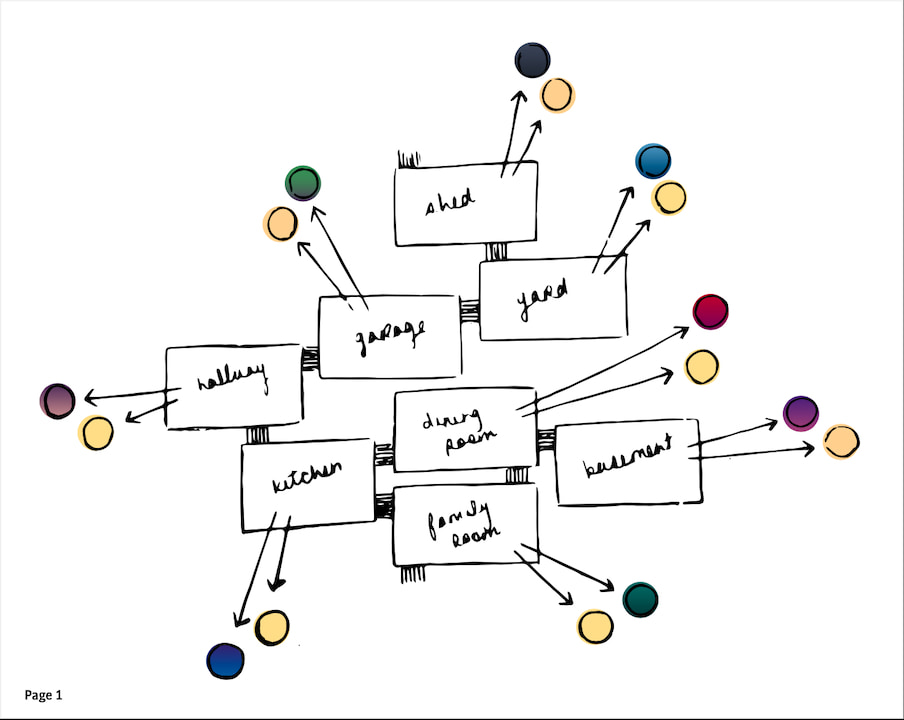 shed
yard
garage
hallway
dining
room
basement
kitchen
family
room
Page 1